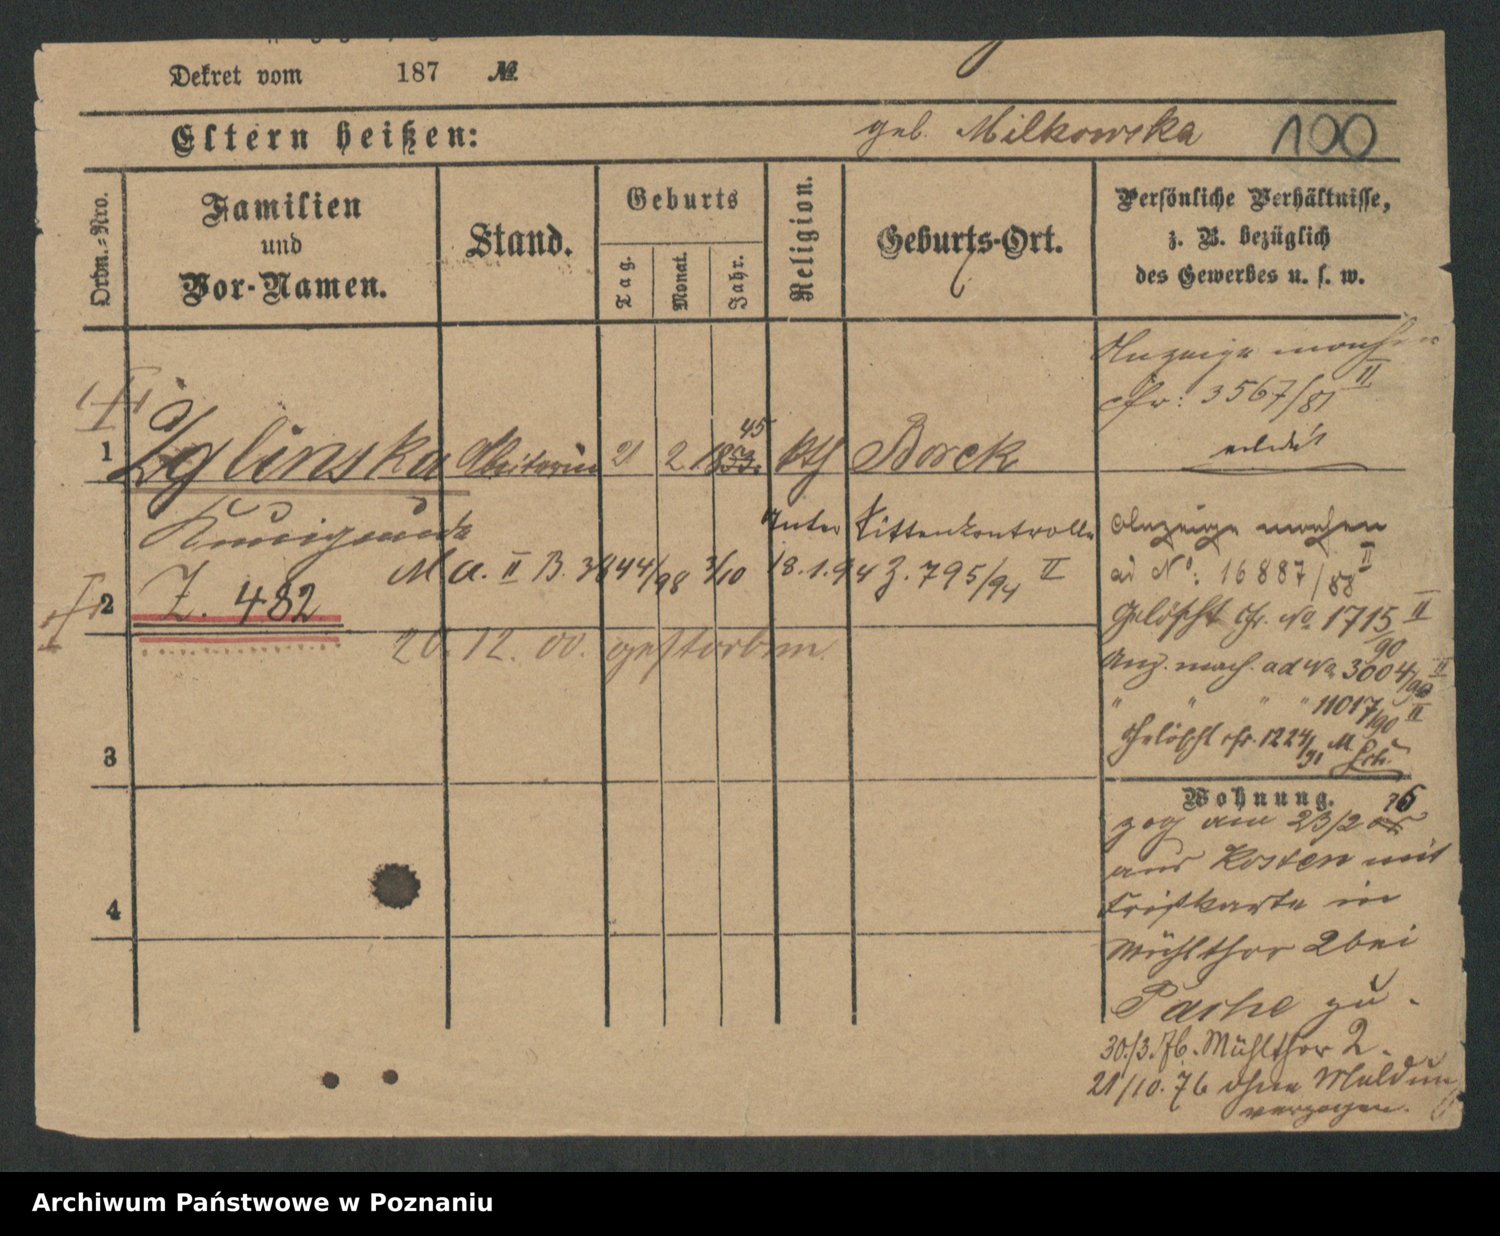 Dekret vom 187 №
Eltern heißen: geb. Milkowska 100
Ordn.-Nro.
Familien und Vor-Namen.
Stand.
Geburts
Tag.
Monat.
Jahr.
Religion.
Geburts-Ort.
Persönliche Verhältnisse,
z. B. bezüglich
des Gewerbes u. s. w.
1 Zglinska 21 2 45 kth Borck
Kunigunde
Unter Sittenkontrolle
M a. II B. 3444/98 3/10 18.1.94 Z. 795/94 II
2 Z. 482
20.12.00. gestorben.
3
4
Anzeige machen
cfr: 3567/81 II
erledigt
Anzeige machen
ad No: 16887/88 II
Gelöscht cfr. No 1715/90 II
Anz. mach. ad No 3004/90 II
" " " " 11017/90 II
Gelöscht cfr. 1224/91 M
Wohnung.
zog am 23/2 76
aus Kosten mit
in
Mühlthor 2 bei
Pasche zu.
30./3.76. Mühlthor 2.
21/10.76 ohne Meldung
verzogen.
Archiwum Państwowe w Poznaniu